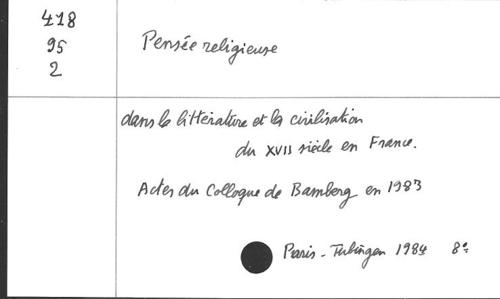 418
95
2
Pensée religieuse
dans la littérature et la civilisation
du XVII siècle en France.
Actes du Colloque de Bamberg en 1983
Paris - Tubingen 1984 8°